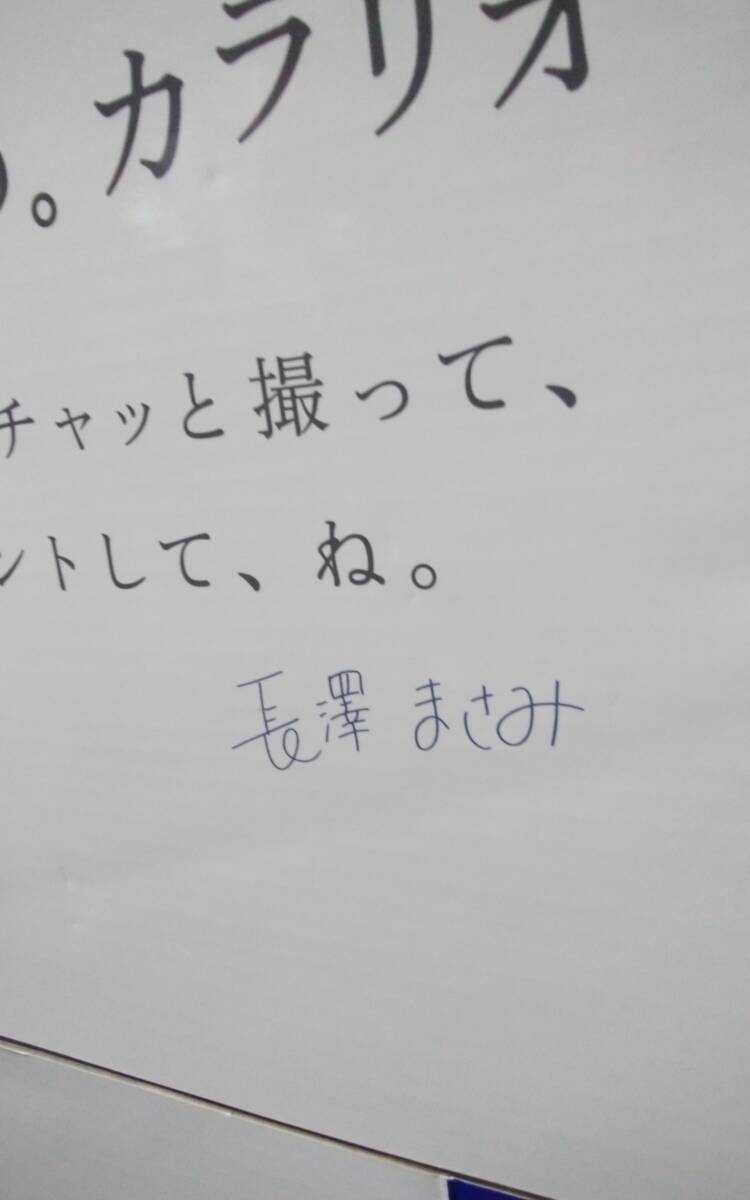 。カラリオ
チャッと撮って、
ントして、ね。
長澤 まさみ